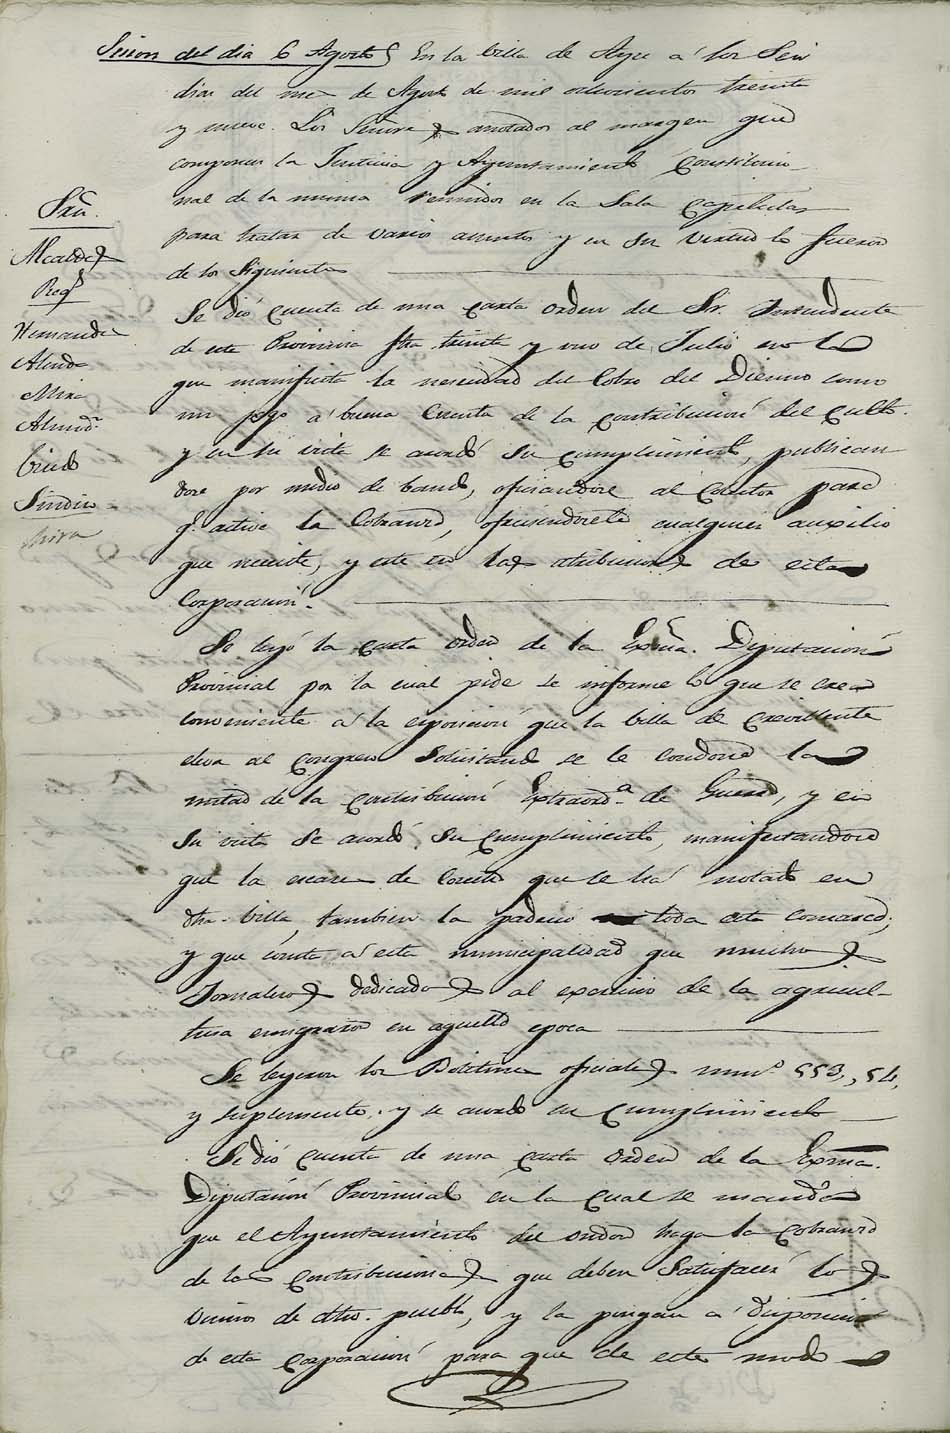 Sesion del dia 6 Agosto En la billa de Aspe a los Seis
dias del mes de Agosto de mil ochocientos treinta
y nueve. Los Señores anotados al margen que
componen la Justicia y Ayuntamiento Constitucio-
nal de la misma reunidos en la Sala Capitular
para tratar de varios asuntos y en su virtud lo fueron
de los Siguientes
Sres.
Alcaldes
Regs
Hernandez
Almodr.
Sindico
Se dió cuenta de una carta orden del Sr. Intendente
de esta Provincia fha. treinta y uno de Julio en la
que manifiesta la necesidad del Cobro del Diezmo como
un pago a buena Cuenta de la contribucion del culto.
y en su vista se acordó su cumplimiento, publican-
dose por medio de bando, oficiandose al Colector para
q. active la Cobranza, ofreciendosele cualquier auxilio
que necesite, y este en las atribuciones de esta
Corporacion.
Se leyó la carta orden de la Exma. Diputacion
Provincial por la cual pide se informe lo que se crea
conveniente a la esposicion que la billa de Crevillente
eleva al Congreso Solicitando se le condone la
mitad de la contribucion Extraord.a de Guerra, y en
su vista se acordó su cumplimiento, manifestandose
que la escases de Cosecha que se ha notado en
dha. billa, tambien la padeció toda esta comarca;
y que consta a esta municipalidad que muchos
Jornaleros dedicados al exercicio de la agricul-
tura emigraron en aquella epoca
Se leyeron los Boletines oficiales num.s 553, 54,
y suplemento. y se acordó su cumplimiento
Se dió cuenta de una carta orden de la Exma.
Diputacion Provincial en la cual se manda
que el Ayuntamiento del ondon haga la Cobranza
de las Contribuciones que deben Satisfacer los
vecinos de dho. pueblo, y la pongan a disposicion
de esta Corporacion para que de este modo